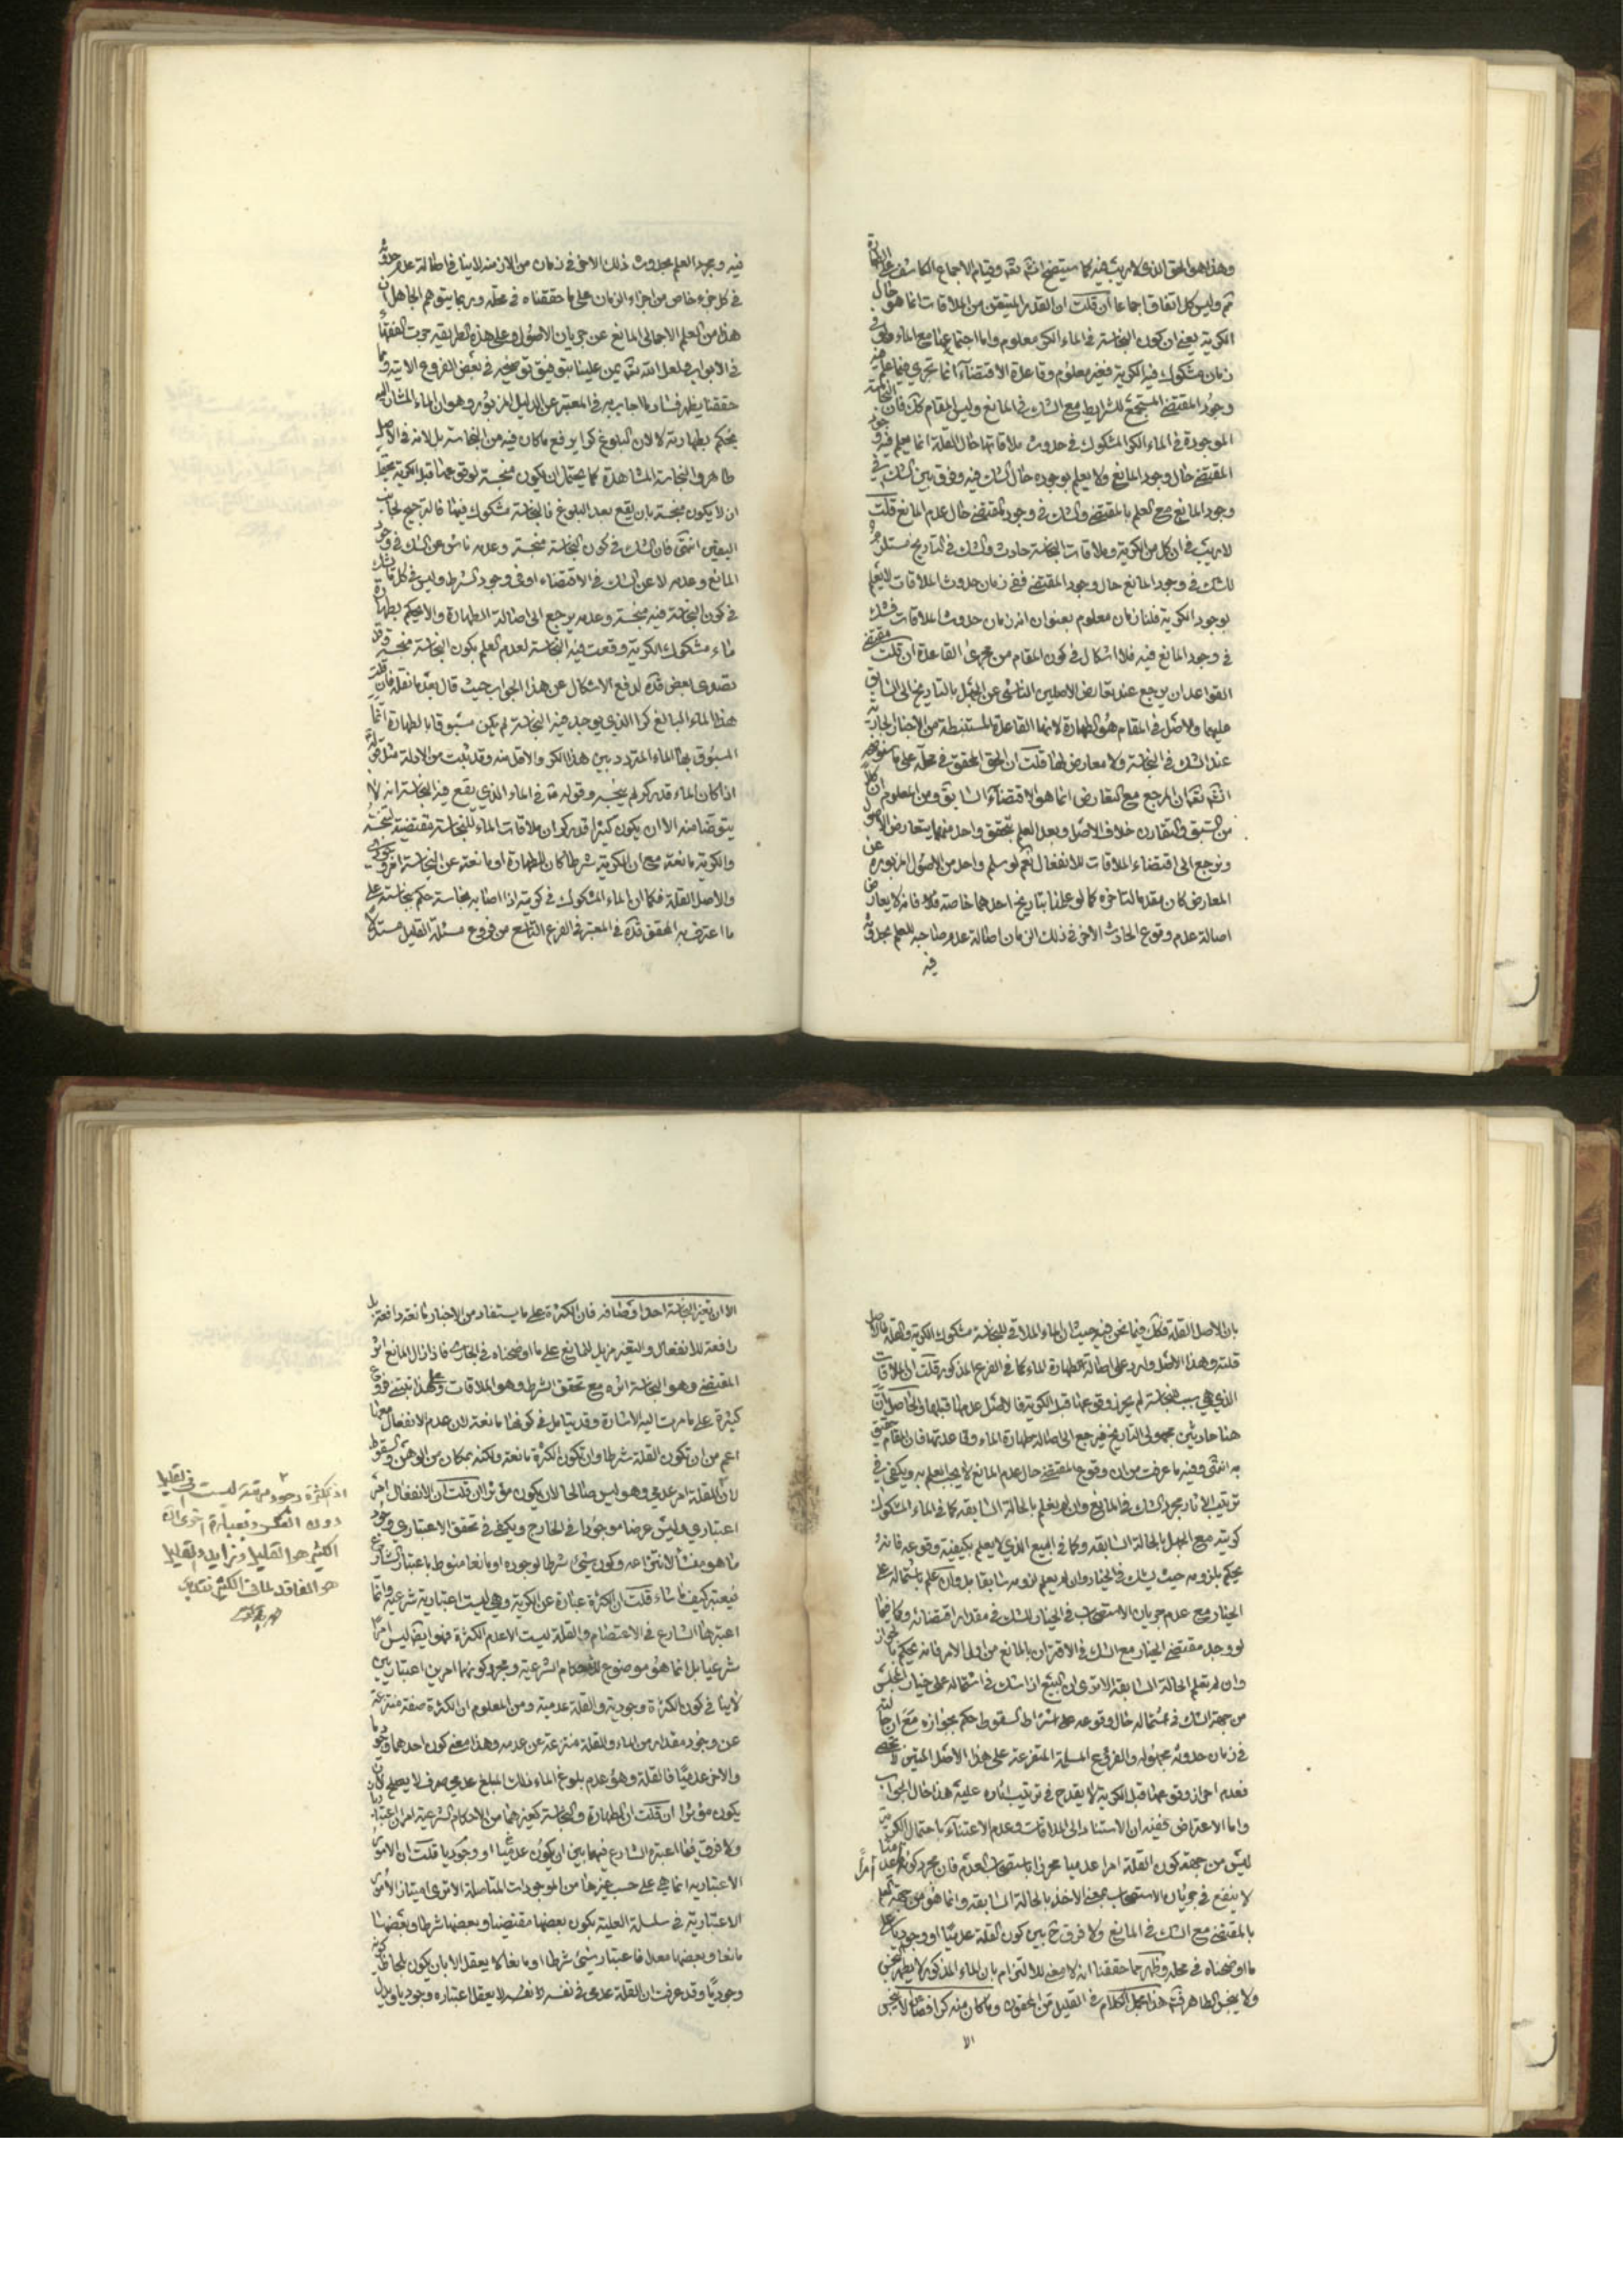 وهذا هو الحق الذي لا ريب فيه كما سيتضح انشم تعم وقيام الاجماع الكاشف على الطهارة
ثم وليس كل اتفاق اجماعا ان قلت ان القدر المتيقن من الملاقات انما هو حال
الكرية يعني ان كون النجاسة في الماء الكر معلوم واما اجتماعها مع الماء ولو في
زمان مشكوك فيه الكرية فغير معلوم وقاعدة الاقتضاء انما تجري فيما علم فيه
وجود المقتضي المستجمع للشرايط مع الشك في المانع وليس المقام كك فان النجاسة
الموجودة في الماء الكر المشكوك في حدوث ملاقاتها حال القلة انما يعلم فيه وجود
المقتضي حال وجود المانع ولا يعلم بوجوده حال الشك فيه وفرق بين الشك في
وجود المانع مع العلم بالمقتضي والشك في وجود المقتضي حال عدم المانع قلت
لا ريب في ان كل من الكرية وملاقات النجاسة حادث والشك في التاريخ مستلزم
للشك في وجود المانع حال وجود المقتضي ففي زمان حدوث الملاقات لا يعلم
بوجود الكرية فلنا زمان معلوم بعنوان انه زمان حدوث الملاقات فشك
في وجود المانع فيه فلا اشكال في كون المقام من مجرى القاعدة ان قلت مقتضى
القواعد ان يرجع عند تعارض الاصلين الناشي عن الجهل بالتاريخ الى السابق
عليهما والاصل في المقام هو الطهارة لانها القاعدة المستنبطة من الاخبار الجارية
عند الشك في النجاسة ولا معارض لها قلت ان الحق المحقق في محله على ما ستعرفه
انشم تعم ان المرجع مع التعارض انما هو الاقتضاء السابق ومن المعلوم ان كلا
من السبق والتقارن خلاف الاصل وبعد العلم بتحقق واحد منهما يتعارض الاصول
ونرجع الى اقتضاء الملاقات للانفعال نعم لو سلم واحد من الاصول المزبورة عن
المعارض كان مقدما كما لو علمنا بتاريخ احدهما خاصة فانه لا يعارض
اصالة عدم وقوع الحادث الاخر في ذلك الزمان اصالة عدم صاحبه للعلم بحدوثه
فيه
فيه ومجرد العلم بحدوث ذلك الاخر في زمان من الازمنة لا ينافي اصالة عدم حدوثه
في كل جزء خاص من اجزاء الزمان على ما حققناه في محله وربما يتوهم الجاهل ان
هذا من العلم الاجمالي المانع عن جريان الاصول وعلى هذه الطريقة جرت الفقهاء
في الابواب ولعل الله تعم يمن علينا بتوفيق توضيحه في بعض الفروع الاتية وبما
حققنا يظهر فساد ما اجاب به في المعتبر عن الدليل المزبور وهو ان الماء المشار اليه
يحكم بطهارته لا لان البلوغ كرا يرفع ما كان فيه من النجاسة بل لانه في الاصل
طاهر والنجاسة المشاهدة كما يحتمل ان يكون منجسة لو وقوعها قبل الكرية يحتمل
ان لا يكون منجسة بان يقع بعد البلوغ فالنجاسة مشكوك فيها فالترجيح لجانب
اليقين انتهى فان الشك في كون النجاسة منجسة وعدمه ناش عن الشك في وجود
المانع وعدمه لا عن الشك في الاقتضاء او في وجود الشرط وليس في كل ما يشك
في كون النجاسة فيه منجسة وعدمه يرجع الى اصالة الطهارة والا لحكم بطهارة
ماء مشكوك الكرية وقعت فيه النجاسة لعدم العلم بكون النجاسة منجسة وقد
تصدى بعض قده لدفع الاشكال عن هذا الجواب حيث قال بعد ما نقله فان قلت
هذا الماء البالغ كرا الذي يوجد فيه النجاسة لم يكن مسبوقا بالطهارة انما
المسبوق بها الماء المتردد بين هذا الكر والاقل منه وقد ثبت من الادلة مثل قوله
اذا كان الماء قدر كر لم ينجسه وقوله في الماء الذي يقع فيه النجاسة انه لا
يتوضا منه الا ان يكون كثيرا قدر كر ان ملاقات الماء للنجاسة مقتضية لنجسه
والكرية مانعة مع ان الكرية شرطا كان للطهارة او مانعة عن النجاسة امر وجودي
والاصل القلة فكما ان الماء المشكوك في كريته اذا اصابه نجاسة حكم بنجاسته على
ما اعترف به المحقق قده في المعتبر في الفرع التاسع من فروع مسئلة القليل مستدلا
بان الاصل القلة فكك فيما نحن فيه حيث ان الماء الملاقي للنجاسة مشكوك الكرية والقلة فالاصل
قلته وهذا الاصل وارد على اصالة الطهارة للماء كما في الفرع المذكور قلت ان الملاقات
الذي هي سبب النجاسة لم يحرز وقوعها قبل الكرية فالاصل عدمها قبلها والحاصل ان
هنا حادثين مجهولي التاريخ فيرجع الى اصالة طهارة الماء وقاعدتها فان المقام حقيق
به انتهى وفيه ما عرفت من ان وقوع المقتضي حال عدم المانع لا يجب العلم به ويكفي في
ترتيب الاثار مجرد الشك في المانع وان لم يعلم بالحالة السابقة كما في الماء المشكوك
كريته مع الجهل بالحالة السابقة وكما في البيع الذي لا يعلم بكيفية وقوعه فانه
يحكم بلزومه حيث يشك في الخيار وان لم يعلم لزومه سابقا بل وان علم باشتماله على
الخيار مع عدم جريان الاستصحاب في الخيار للشك في مقدار اقتضائه وكما فيما
لو وجد مقتضي الخيار مع الشك في الاقتران بالمانع من اول الامر فانه يحكم بالجواز
وان لم تعلم الحالة السابقة الا ترى ان البيع اذا شك في اشتماله على خيار المجلس
من جهة الشك في اشتماله حال وقوعه على اشتراط السقوط حكم بجوازه مع ان حالته
في زمان حدوثه مجهولة والفروع المسلمة المتفرعة على هذا الاصل المتين لا تحصى
فعدم احراز وقوعها قبل الكرية لا يقدح في ترتيب اثاره عليه هذا حال الجواب
واما الاعتراض فحقيقته ان الاستناد الى الملاقات وعدم الاعتناء باحتمال الكرية
ليس من جهة كون القلة امرا عدميا محرزا باستصحاب العدم فان مجرد كونها امرا عدميا
لا ينفع في جريان الاستصحاب بمعنى الاخذ بالحالة السابقة وانما هو من جهة العلم
بالمقتضي مع الشك في المانع ولا فرق ح بين كون القلة عدميا او وجوديا على
ما اوضحناه في محله وظهر مما حققنا انه لا معنى للالتزام بان الماء المذكور لا يطهر النجس
ولا ينجس الطاهر فتم هذا مجمل الكلام في القليل من المحقون وما كان منه كرا فصاعدا لا ينجس
الا
الا ان تغير النجاسة احد اوصافه فان الكثرة على ما يستفاد من الاخبار مانعة دافعة بل
رافعة للانفعال والتغير مزيل للمانع على ما اوضحناه في الجاري فاذا زال المانع اثر
المقتضي وهو النجاسة اثره مع تحقق الشرط وهو الملاقات وعلى هذا تبتني فروع
كثيرة على ما مرت اليه الاشارة وقد يتامل في كونها مانعة لان عدم الانفعال معها
اعم من ان تكون القلة شرطا وان تكون الكثرة مانعة ولكنه بمكان من الوهن والسقوط
لان القلة امر عدمي وهو ليس صالحا لان يكون مؤثرا ان قلت ان الانفعال امر
اعتباري وليس عرضا موجودا في الخارج ويكفي في تحقق الاعتباري وجود
ما هو منشأ لانتزاعه وكون شيئ شرطا لوجوده او مانعا منوط باعتبار الشارع
فيعتبره كيفما شاء قلت ان الكثرة عبارة عن الكرية وهي ليست اعتبارية شرعية وانما
اعتبرها الشارع في الاعتصام والقلة ليست الا عدم الكثرة فهو ايضا ليس امرا
شرعيا بل انما هو موضوع للاحكام الشرعية ومجرد كونهما امرين اعتباريين
لا ينافي كون الكثرة وجودية والقلة عدمية ومن المعلوم ان الكثرة صفة منتزعة
عن وجود مقدار من الماء والقلة منتزعة عن عدمه وهذا معنى كون احدهما وجوديا
والاخر عدميا فالقلة وهو عدم بلوغ الماء ذلك المبلغ عدمي صرف لا يصلح لان
يكون مؤثرا ان قلت ان الطهارة والنجاسة كغيرهما من الاحكام الشرعية امران اعتباريان
ولا فرق فيما اعتبره الشارع فيهما بين ان يكون عدميا او وجوديا قلت ان الامور
الاعتبارية انما هي على حسب غيرها من الموجودات المتاصلة الا ترى امتياز الامور
الاعتبارية في سلسلة العلية بكون بعضها مقتضيا وبعضها شرطا وبعضها
مانعا وبعضها معدا فاعتبار شيئ شرطا او مانعا لا يعقل الا بان يكون المحافظ كونه
وجوديا وقد عرفت ان القلة عدمي في نفسه لا يعقل اعتباره وجوديا ويدل
اذ الكثرة وجود مرتبة ليست في القليل
دون العكس وبعبارة اخرى ان
الكثير هو القليل وزيادة والقليل
هو الفاقد لما في الكثير فتدبر